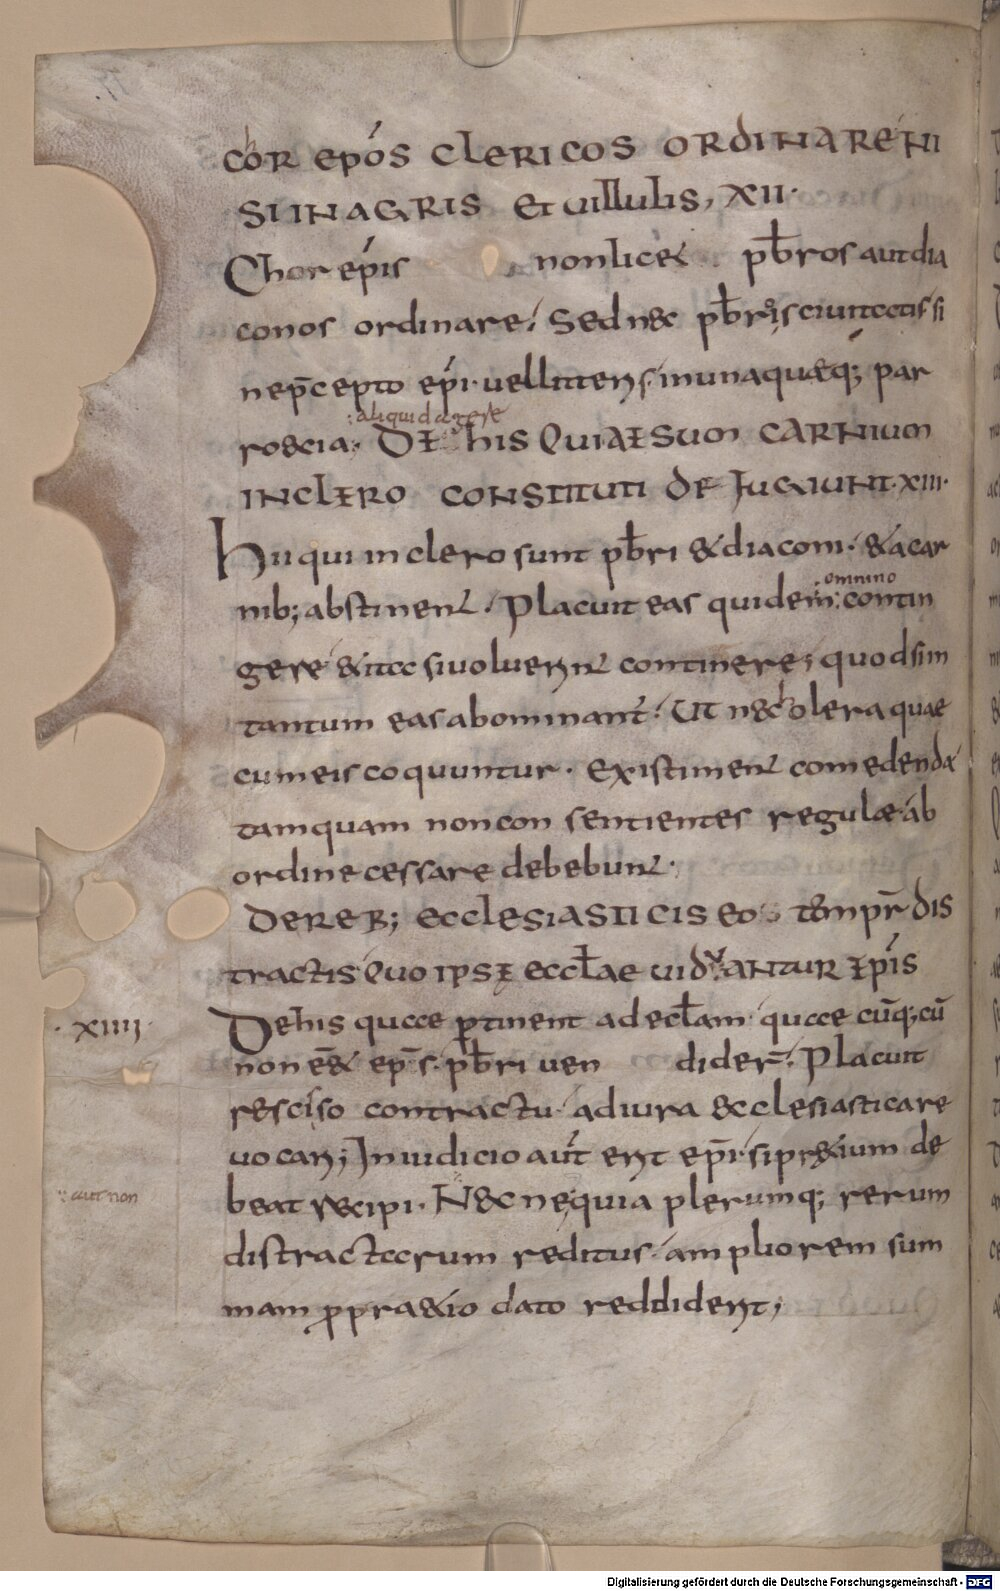 cor ep̄os clericos ordinare ni
si in agris et villulis, XII·
Chor ep̄is non licet pb̄ros aut dia
conos ordinare; Sed nec pb̄ris ciuitatis si
ne p̄cepto ep̄i· uel litteris· in unaquaeq; par
aliquid agere
roecia· De his qui a esum carnium
in clero constituti de fugiunt· XIII·
Hii qui in clero sunt pb̄ri & diaconi· & a car
omnino
nib; abstinent· Placuit eas quidem contin
gere & ita si uoluerint continere; quod si in
tantum eas abominant̄· Ut nec olera quae
cum eis coquuntur· Existiment comedenda
tamquam non con sentientes regulae ab
ordine cessare debebunt·
De reb; ecclesiasticis eo tempr̄ dis
tractis quo ipse eccl̄ae uiduantur ep̄is
·XIIII· De his quae ꝑtinent ad eccl̄am· quaecūq; cū
non eēt ep̄s· pb̄ri ven dider̄· Placuit
resciso contractu· ad iura ecclesiastica re
uocari; In iudicio aut̄ erit ep̄i· si pretium de
: aut non beat recipi· Nec ne quia plerumq; rerum
distractarum reditus· ampliorem sum
mam ꝓ praetio dato reddiderit;
Digitalisierung gefördert durch die Deutsche Forschungsgemeinschaft - DFG